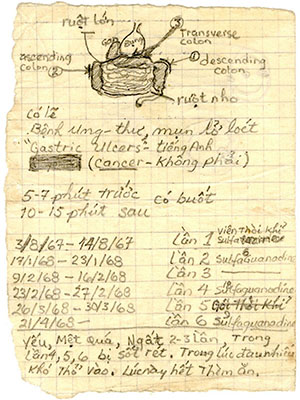 ruột lớn
③ Transverse colon
Gan
ascending colon ②
① descending colon
ruột nhỏ
Có lẽ
Bệnh ung-thư, mụn lở loét
"Gastric Ulcers" - tiếng Anh
(cancer - không phải)
5-7 phút trước
có buốt
10-15 phút sau
3/8/67 - 14/8/67 Lần 1 Viên Thời Khí
17/1/68 - 23/1/68 Lần 2 Sulfaguanadine
9/2/68 - 16/2/68 Lần 3 —
23/2/68 - 27/2/68 Lần 4 Sulfaguanadine
26/3/68 - 30/3/68 Lần 5 Thời Khí
21/4/68 - Lần 6 Sulfaguanadine
Yếu, Mệt Quá, Ngất 2-3 lần, Trong
lần 4, 5, 6 bị sốt rét. Trong lúc đau nhiều
khó thở vào. Lúc này hết Thèm ăn.